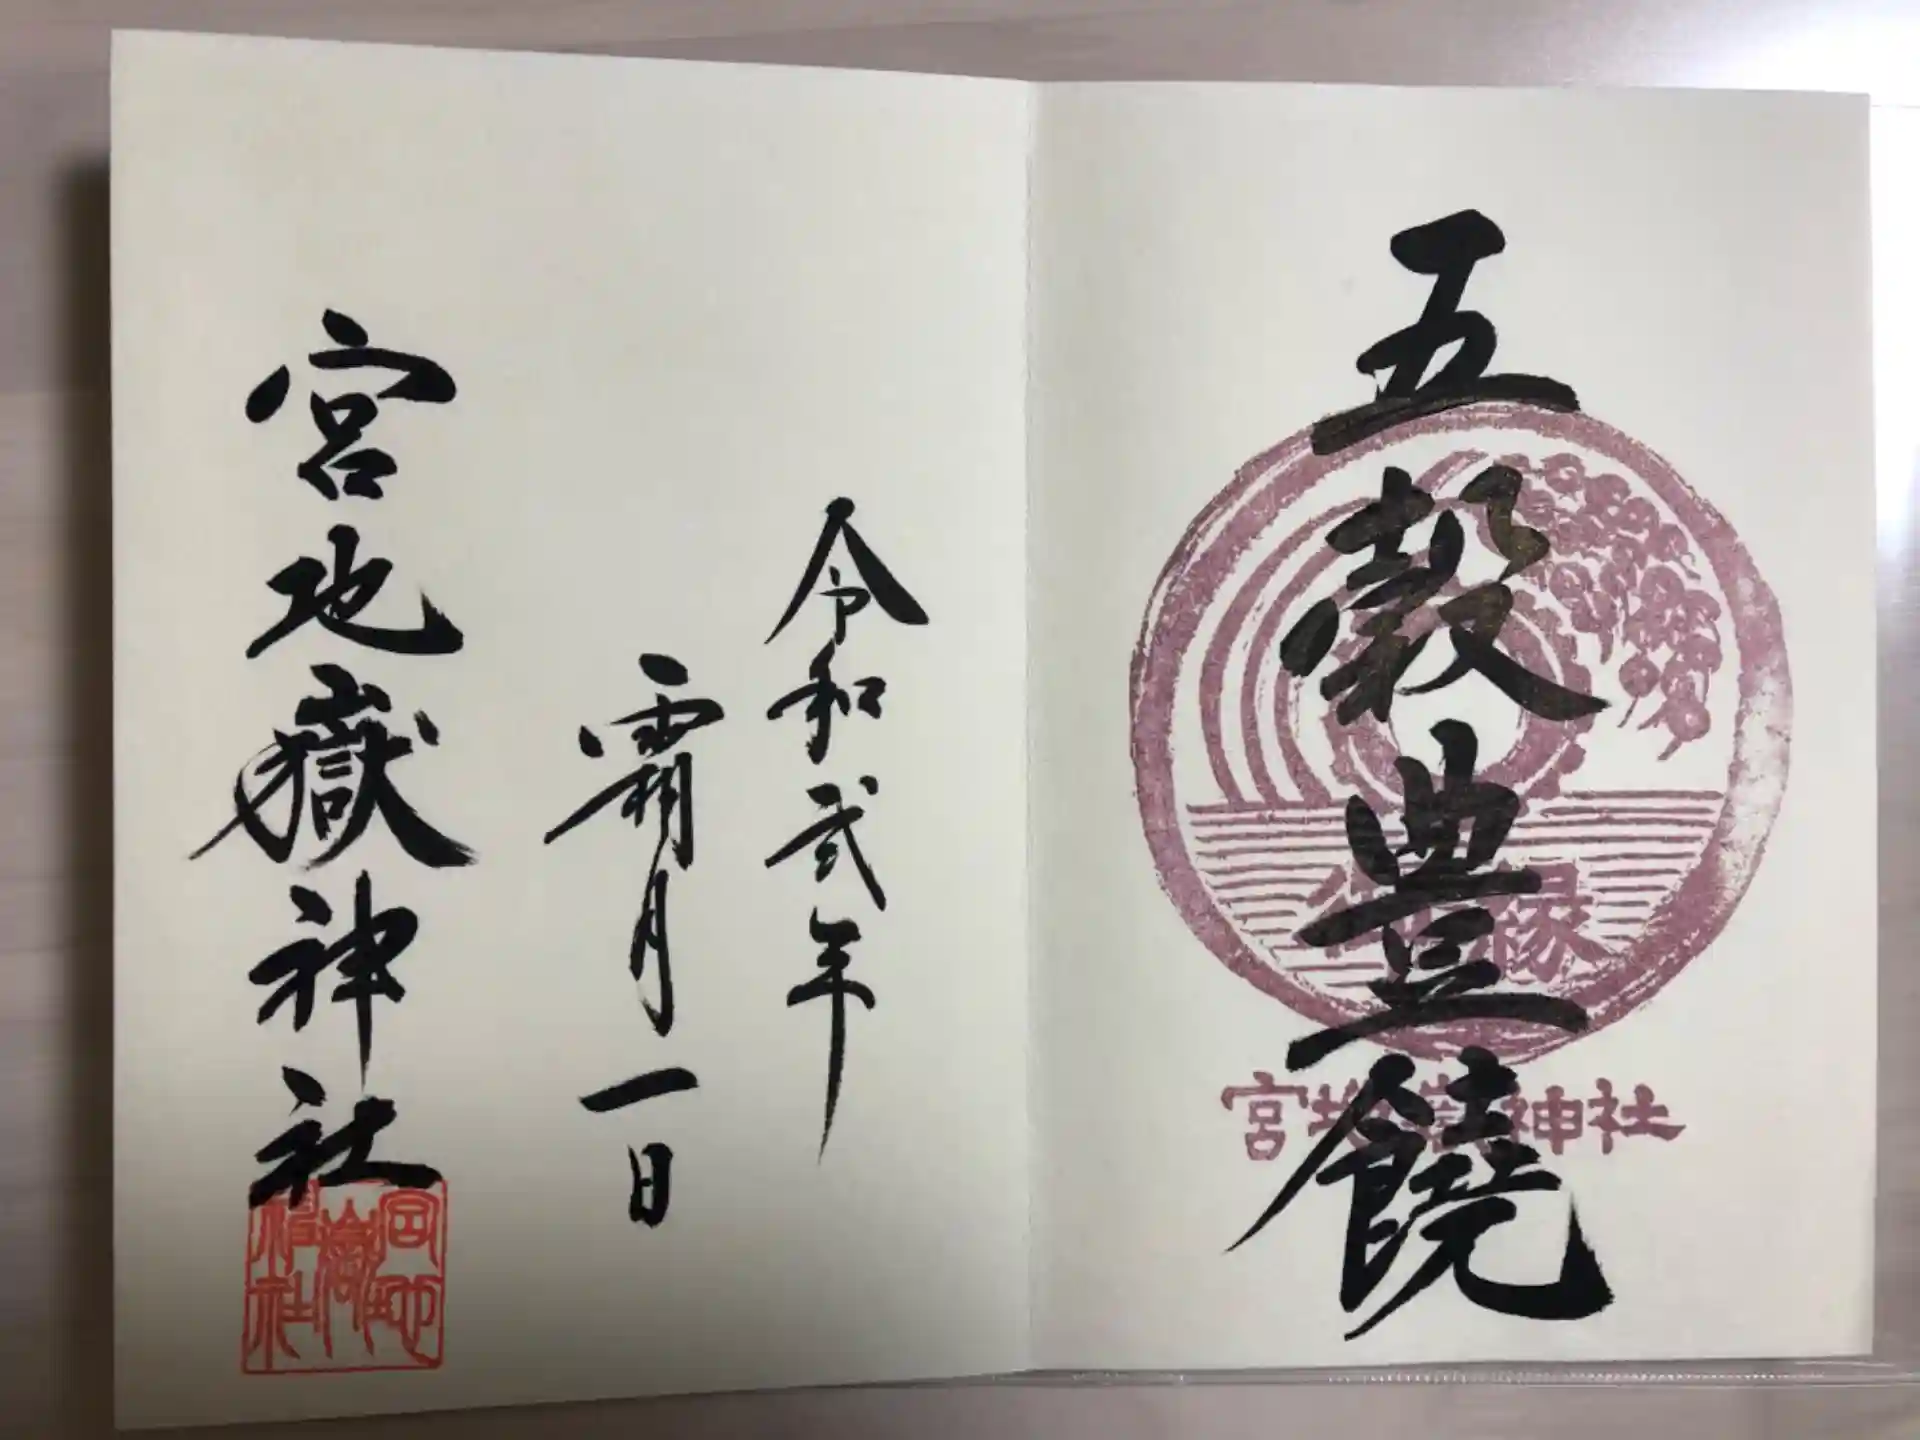 五穀豊饒
御縁
宮地嶽神社
令和弐年
霜月一日
宮地嶽神社
宮地嶽神社